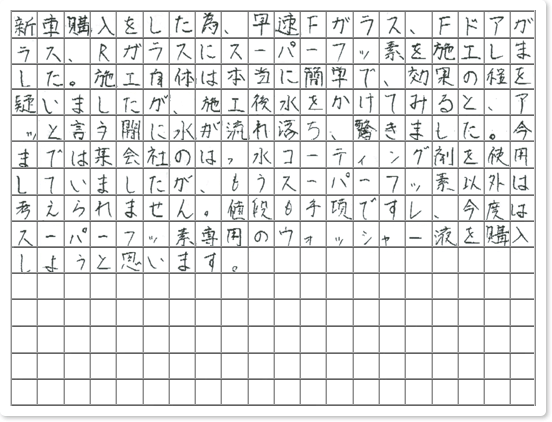 新車購入をした為、早速Fガラス、Fドアガ
ラス、Rガラスにスーパーフッ素を施工しま
した。施工自体は本当に簡単で、効果の程を
疑いましたが、施工後水をかけてみると、ア
ッと言う間に水が流れ落ち、驚きました。今
までは某会社のはっ水コーティング剤を使用
していましたが、もうスーパーフッ素以外は
考えられません。値段も手頃ですし、今度は
スーパーフッ素専用のウォッシャー液を購入
しようと思います。